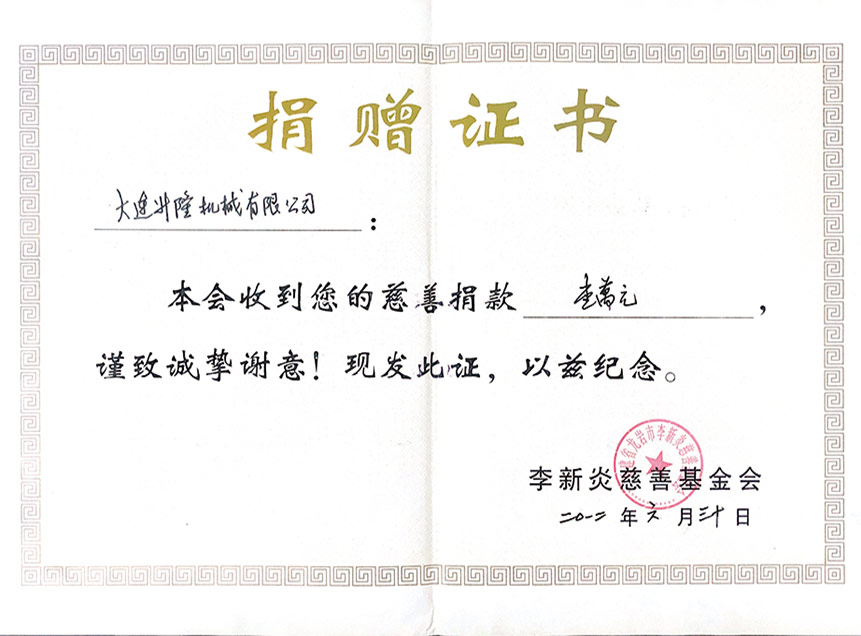 捐赠证书
大连升隆机械有限公司：
本会收到您的慈善捐款 壹萬元，
谨致诚挚谢意！现发此证，以兹纪念。
建省龙岩市李新炎慈善
李新炎慈善基金会
二0一二年六月三十日